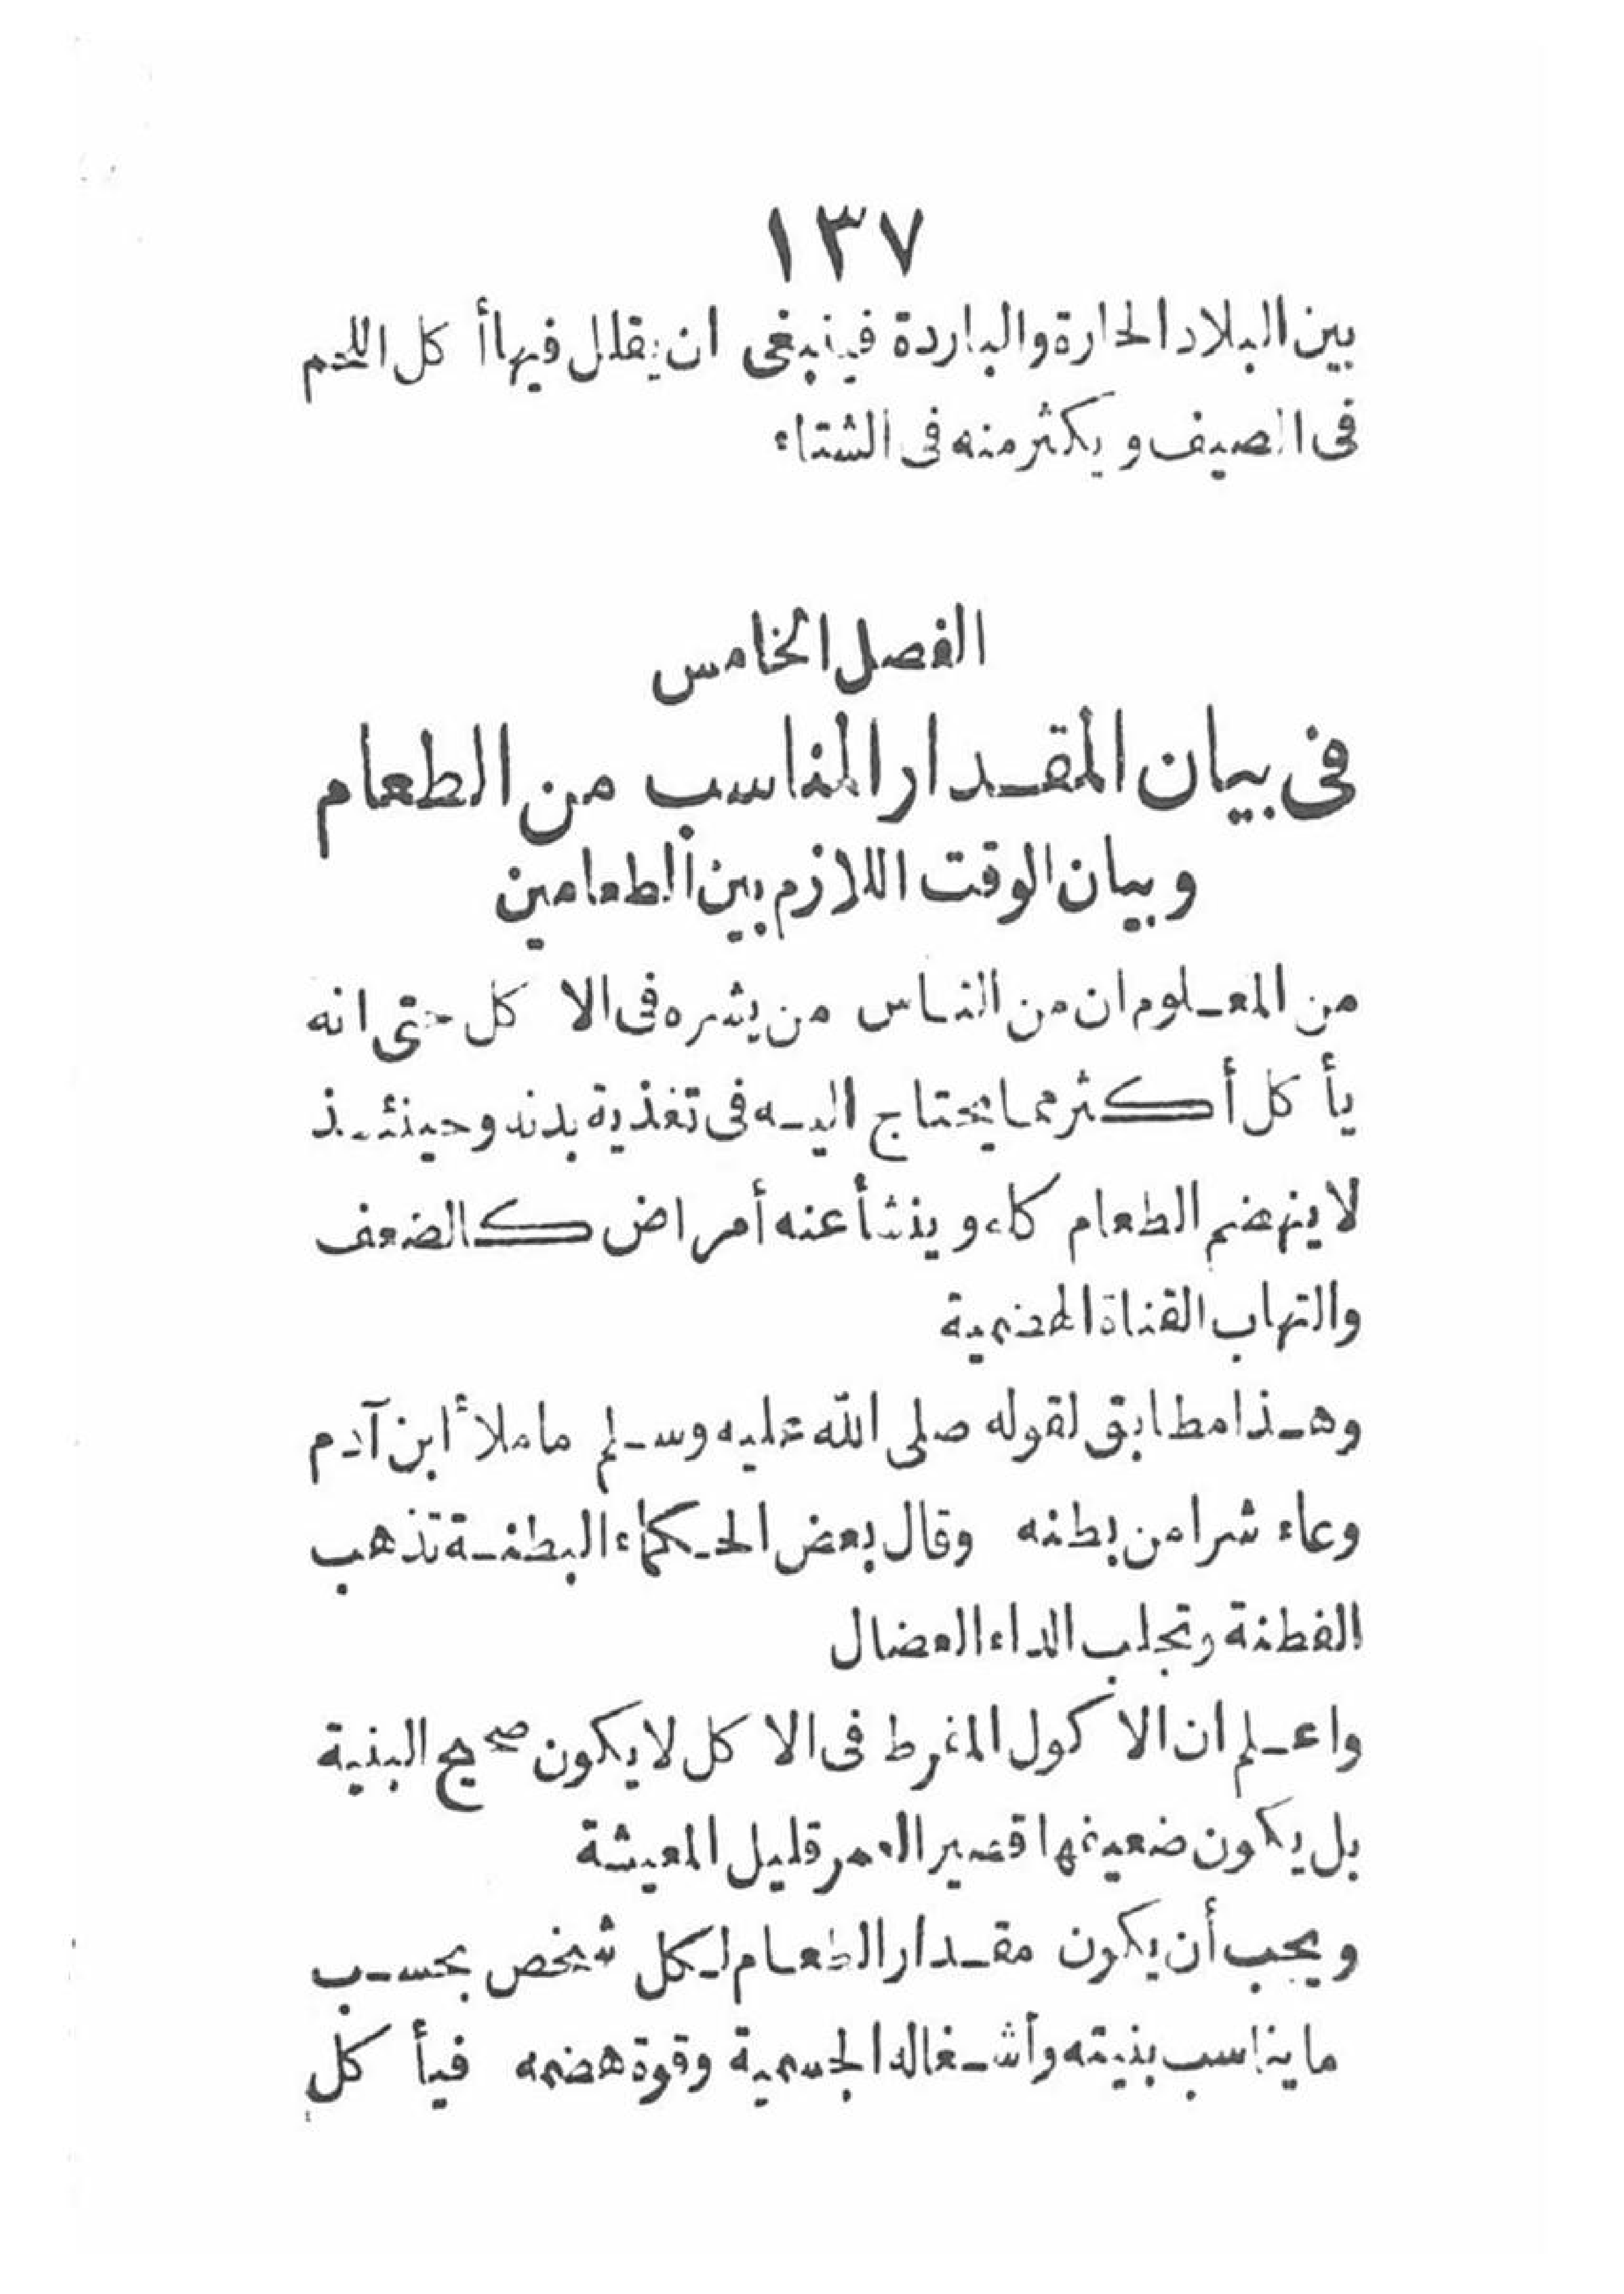 ١٣٧
بين البلاد الحارة والباردة فينبغى ان يقلل فيها أكل اللحم
فى الصيف ويكثر منه فى الشتاء
الفصل الخامس
فى بيان المقدار المناسب من الطعام
وبيان الوقت اللازم بين الطعامين
من المعلوم ان من الناس من يشره فى الاكل حتى انه
يأكل أكثر مما يحتاج اليه فى تغذية بدنه وحينئذ
لا ينهضم الطعام كله وينشأ عنه أمراض كالضعف
والتهاب القناة الهضمية
وهذا مطابق لقوله صلى الله عليه وسلم ما ملأ ابن آدم
وعاء شرا من بطنه وقال بعض الحكماء البطنة تذهب
الفطنة وتجلب الداء العضال
واعلم ان الاكول المفرط فى الاكل لا يكون صحيح البنية
بل يكون ضعيفها قصير العمر قليل المعيشة
ويجب أن يكون مقدار الطعام لكل شخص بحسب
ما يناسب بنيته وأشغاله الجسمية وقوة هضمه فيأكل